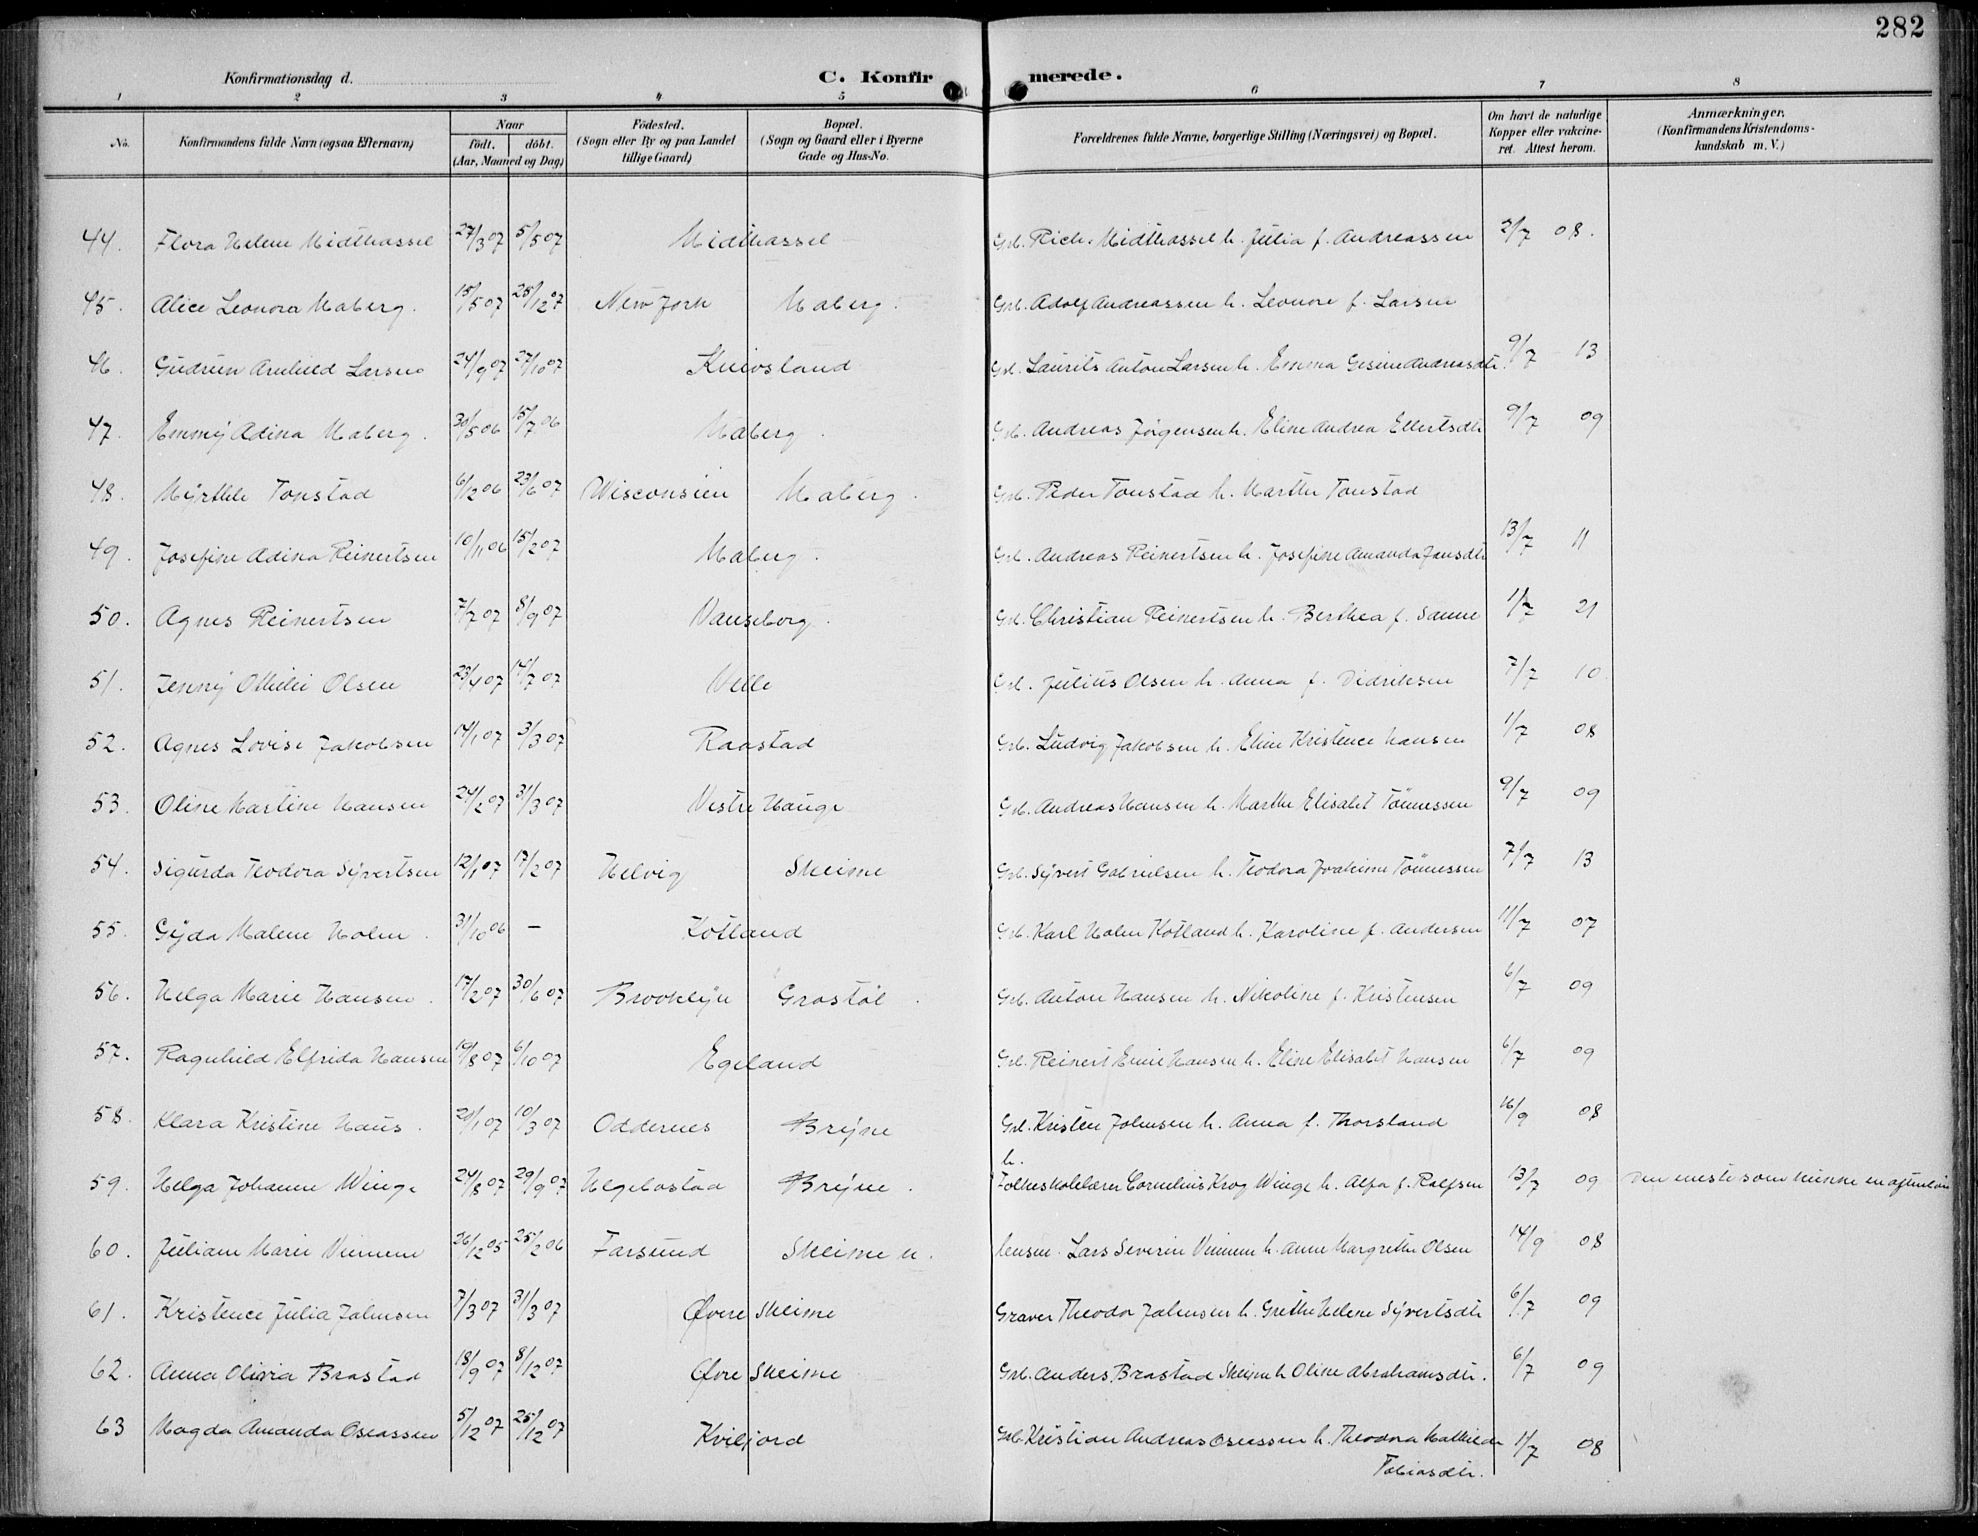 282
Konfirmationsdag d.
C. Konfirmerede.
1 2 3 4 5 6 7 8
No. Konfirmandens fulde Navn (ogsaa Efternavn) Naar født. døbt. (Aar, Maaned og Dag) Fødested. (Sogn eller By og paa Landet tillige Gaard) Bopæl. (Sogn og Gaard eller i Byerne Gade og Hus-No. Forældrenes fulde Navne, borgerlige Stilling (Næringsvei) og Bopæl. Om havt de naturlige Kopper eller vaccineret. Attest herom. Anmærkninger. (Konfirmandens Kristendomskundskab m. V.)
44. Flora Helene Midthassel 27/3 07 5/5 07 Midthassel Grb. Rich. Midthassel h. Julia f. Andreassen 2/7 08.
45. Alice Leonora Maberg. 18/5 07 28/12 07 New York Maberg. Grb. Adolf Andreassen h. Leonore f. Larsen
46. Gudrun Arnhild Larsen 24/9 07 27/10 07 Knivsland Grb. Laurits Anton Larsen h. Emma Gesine Andreasdtr. 9/7 13
47. Emmy Adina Maberg. 30/5 06 15/7 06 Maberg. Grb. Andreas Jørgensen h. Eline Andrea Ellertsdtr 9/7 09
48. Myrthle Tonstad 6/12 06 23/6 07 Wisconsien Maberg. Grb. Peder Tonstad h. Marthe Tonstad
49. Josefine Adina Reinertsen 10/11 06 15/2 07 Maberg. Grb. Andreas Reinertsen h. Josefine Amanda Jansdtr 13/7 11
50. Agnes Reinertsen 7/7 07 8/9 07 Vanseborg. Grb. Christian Reinertsen h. Berthea f. Sanne 1/7 21
51. Jenny Othilie Olsen 23/4 07 14/7 07 Velle Grb. Julius Olsen h. Anna f. Didriksen 7/7 10
52. Agnes Lovise Jakobsen 14/1 07 3/3 07 Raastad Grb. Ludvig Jakobsen h. Eline Kristence Hansen 1/7 08
53. Oline Martine Hansen 24/2 07 31/3 07 Vestre Hauge Grb. Andreas Hansen h. Marthe Elisabet Tönnessen 9/7 09
54. Sigurda Teodora Syvertsen 12/1 07 17/2 07 Helvig Skeime Grb. Syvert Gabrielsen h. Teodora Joakime Tönnessen 7/7 13
55. Gyda Malene Holm. 31/10 06 – Kotland Grb. Karl Holm Kotland h. Karoline f. Andersen 11/7 07
56. Helga Marie Hansen. 17/2 07 30/6 07 Brooklyn Grostøl. Grb. Anton Hansen h. Nikoline f. Kristensen 6/7 09
57. Ragnhild Elfrida Hansen 19/8 07 6/10 07 Egeland Grb. Reinert Emil Hansen h. Eline Elisabet Hansen 6/7 09
58. Klara Kristine Haus. 20/1 07 10/3 07 Oddernes Bryne Grb. Kristen Johnsen h. Anna f. Thorsland 16/9 08
59. Helga Johanne Winge 24/8 07 29/9 07 Hegebostad Bryne. Folkeskolelærer Cornelius Krog Winge h. Alfa f. Rolfsen 13/7 09 Den eneste som kunne
60. Juliane Marie Vinnem 26/12 05 25/2 06 Farsund Skeime n. Lars Severin Vinnem h. Anne Margrethe Olsen 14/9 08
61. Kristence Julia Johnsen 7/3 07 31/3 07 Øvere Skeime Graver Theodor Johnsen h. Grethe Helene Syvertsdtr 6/7 09
62. Anna Olivia Brastad 18/9 07 8/12 07 Øvre Skeime Grb. Anders Brastad Skeime h Oline Abrahamsdtr. 6/7 09
63 Magda Amanda Oseassen 5/12 07 25/12 07 Kviljord Grb Kristian Andreas Oseassen h. Theodora Mathilde 1/7 08
Tobiasdtr.